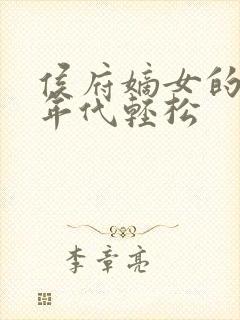 侯府嫡女的
年代轻松
李章亮